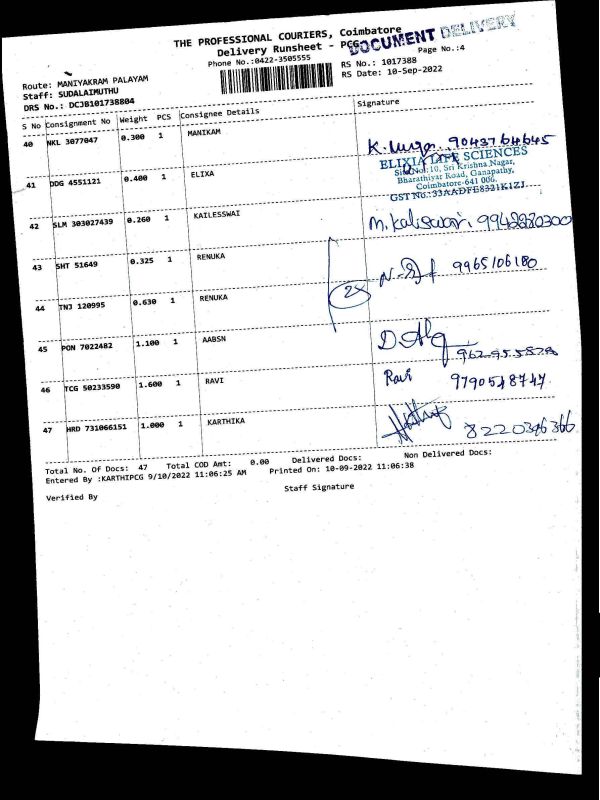 THE PROFESSIONAL COURIERS, Coimbatore
Delivery Runsheet - PCG
DOCUMENT DELIVERY
Phone No.:0422-3505555
Page No.:4
RS No.: 1017388
RS Date: 10-Sep-2022
Route: MANIYAKRAM PALAYAM
Staff: SUDALAIMUTHU
DRS No.: DCJB101738804
S No Consignment No Weight PCS Consignee Details Signature
40 NKL 3077047 0.300 1 MANIKAM 9043764645
ELIXIA LIFE SCIENCES
Site No: 10, Sri Krishna Nagar,
Bharathiyar Road, Ganapathy,
Coimbatore-641 006.
GST No.:33AADFE8321K1ZJ
41 DDG 4551121 0.400 1 ELIXA
42 SLM 303027439 0.260 1 KAILESSWAI M. Kaliswari.
43 SHT 51649 0.325 1 RENUKA 9965106180
44 TNJ 120995 0.630 1 RENUKA
45 PON 7022482 1.100 1 AABSN
46 TCG 50233590 1.600 1 RAVI Ravi 9790548747
47 HRD 731066151 1.000 1 KARTHIKA 8220346366
Total No. Of Docs: 47 Total COD Amt: 0.00 Delivered Docs: Non Delivered Docs:
Entered By :KARTHIPCG 9/10/2022 11:06:25 AM Printed On: 10-09-2022 11:06:38
Verified By Staff Signature